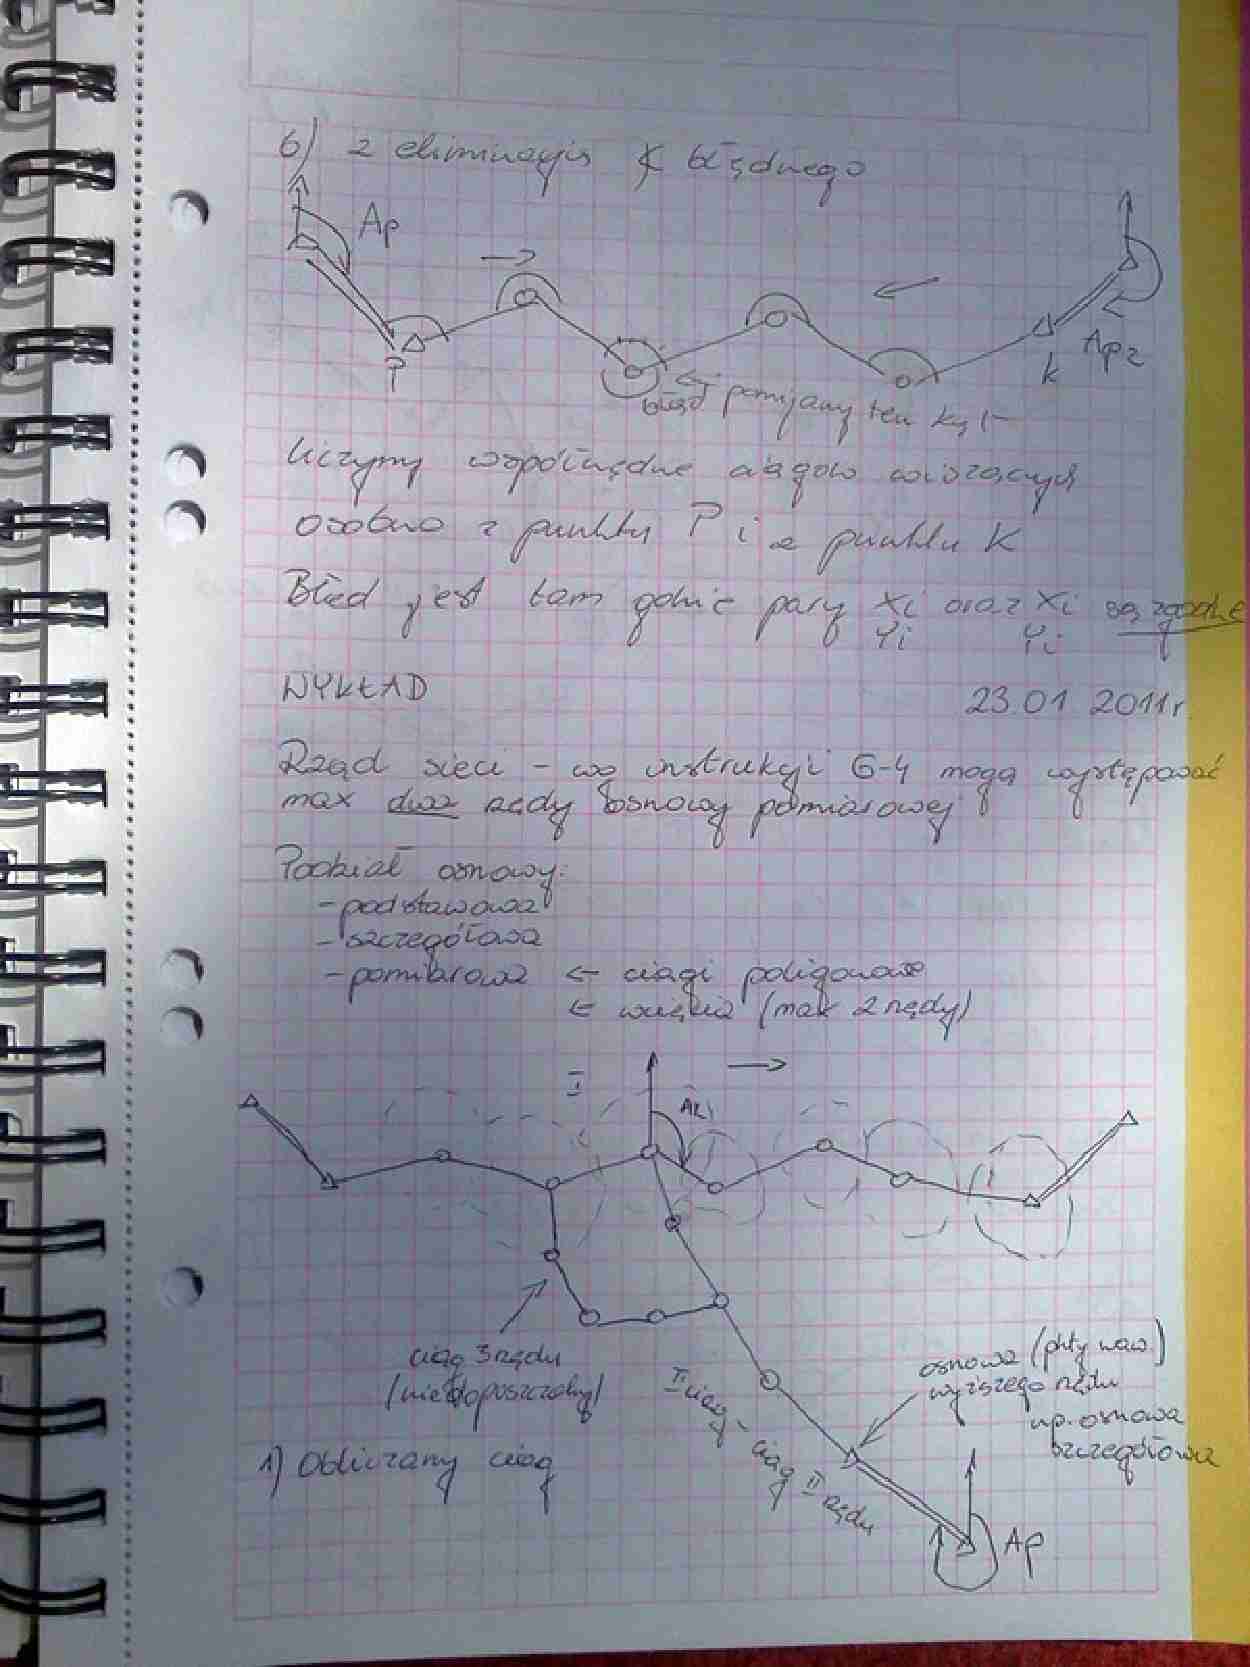 6) z eliminacją ∢ błędnego
Ap
P
k
Apz
błąd pomijamy ten kąt
liczymy współrzędne ciągów wiszących
osobno z punktu P i z punktu K
Błąd jest tam gdzie pary Xi oraz Xi są zgodne
Yi Yi
WYKŁAD 23.01 2011r.
Rząd sieci - wg instrukcji G-4 mogą występować
max dwa rzędy osnowy pomiarowej
Podział osnowy:
- podstawowa
- szczegółowa
- pomiarowa ← ciągi poligonowe
← wcięcia (max 2 rzędy)
I
AK1
ciąg 3 rzędu
(niedopuszczalny)
II ciąg - ciąg II rzędu
osnowa (pkty naw.)
wyższego rzędu
np. osnowa
szczegółowa
1) Obliczamy ciąg
Ap